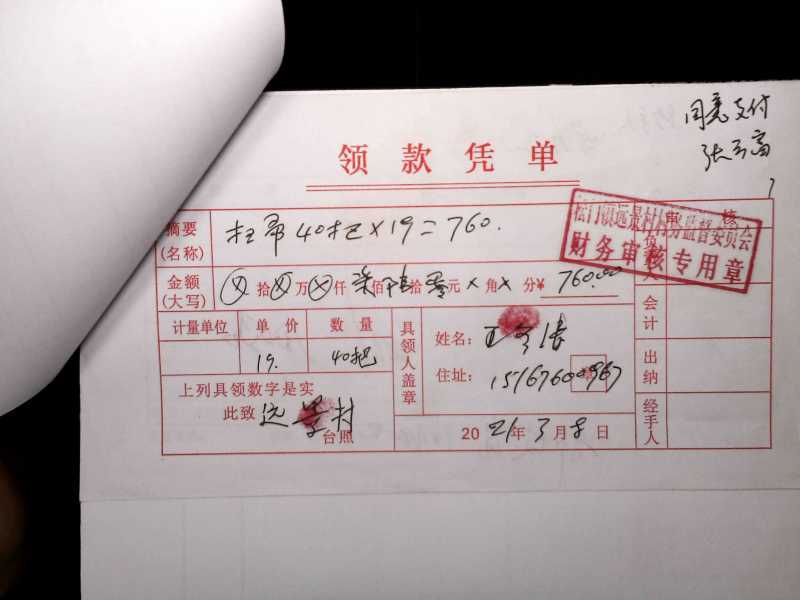 同意支付
领款凭单
摘要(名称) 扫帚40把×19=760.
松门镇远景村村务监督委员会
财务审核专用章
审核
金额(大写) 拾 万 仟 柒佰陆拾零元×角×分¥760.00
计量单位 单价 数量
19. 40把
具领人盖章
姓名:
住址: 15167600967
上列具领数字是实
此致 远景村
台照
2021年3月8日
会计
出纳
经手人